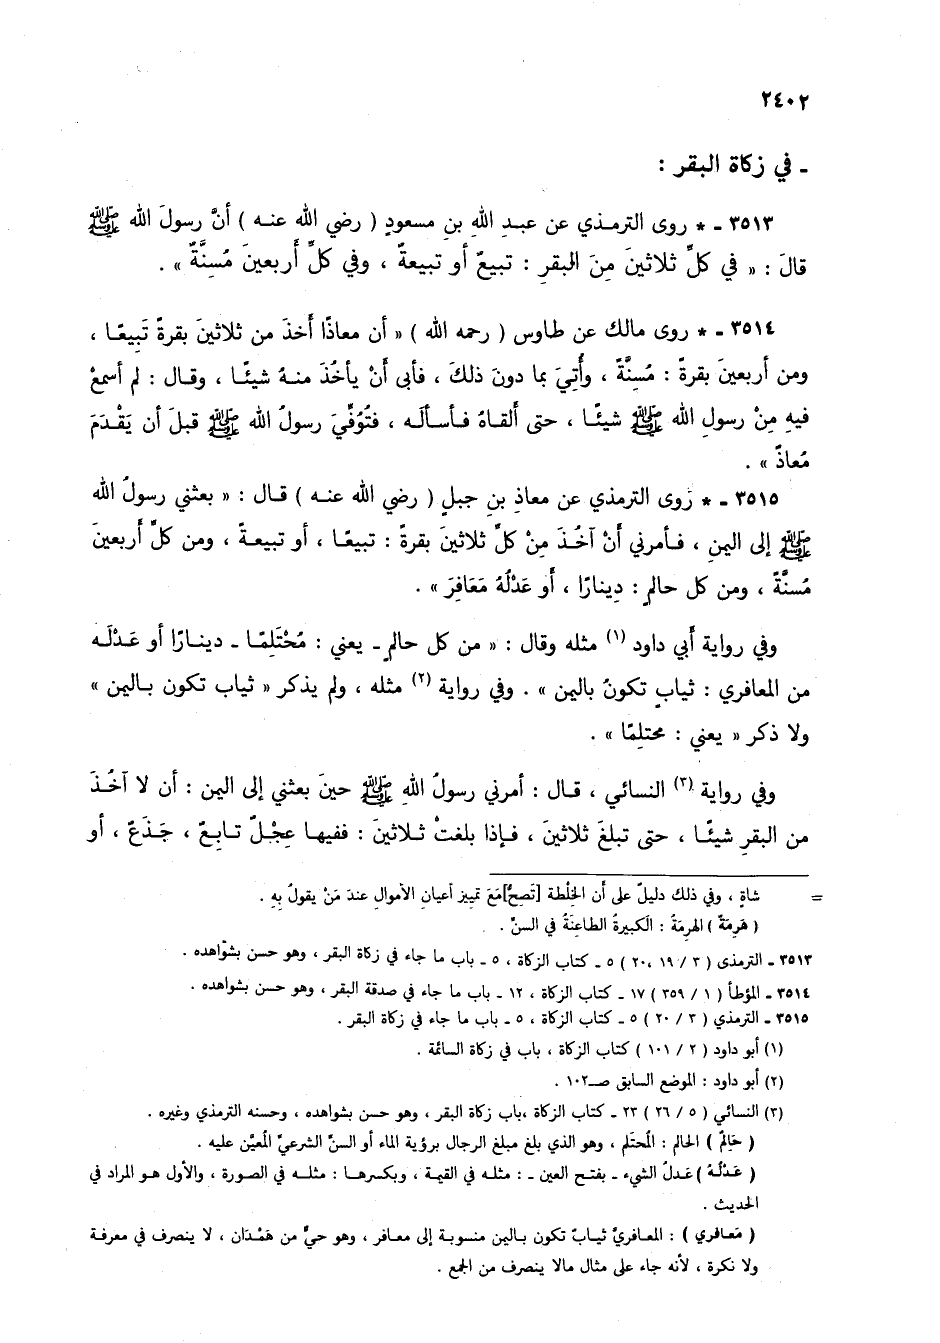 ٢٤٠٢
ـ في زكاة البقر :
٣٥١٣ ـ * روى الترمـذي عن عبـدِ اللهِ بنِ مسعودٍ ( رضي الله عنـه ) أنَّ رسولَ الله ﷺ
قالَ : « في كلِّ ثلاثينَ مِنَ البقرِ : تبيعٌ أو تبيعةٌ ، وفي كلِّ أربعينَ مُسنَّةٌ » .
٣٥١٤ ـ * روى مالك عن طاوس ( رحمه الله ) « أن معاذًا أخذَ من ثلاثينَ بقرةً تَبِيعًا ،
ومن أربعينَ بقرةً : مُسِنَّةً ، وأُتِيَ بما دونَ ذلكَ ، فأبى أنْ يأخُذَ منـهُ شيئًـا ، وقـال : لم أسمعْ
فيهِ مِنْ رسولِ الله ﷺ شيئًـا ، حتى ألقاهُ فـأسألَـه ، فتُوُفِّيَ رسولُ الله ﷺ قبلَ أن يَقْدَمَ
مُعاذٌ » .
٣٥١٥ ـ * رَوى الترمذي عن معاذِ بنِ جبلٍ ( رضي الله عنـه ) قـال : « بعثني رسولُ الله
ﷺ إلى اليمن ، فـأمرني أنْ آخُـذَ مِنْ كلِّ ثلاثينَ بقرةً : تبيعًـا ، أو تبيعـةً ، ومن كلِّ أربعينَ
مُسنَّةً ، ومن كل حالمٍ : دِينارًا ، أو عَدْلَهُ مَعَافِرَ » .
وفي رواية أبي داود (١) مثله وقال : « من كل حالمٍ ـ يعني : مُحْتَلِمًـا ـ دينـارًا أو عَـدْلَـه
من المعافري : ثيابٍ تكونُ باليمن » . وفي رواية (٢) مثله ، ولم يذكر « ثياب تكون بـاليمن »
ولا ذكر « يعني : محتلِمًا » .
وفي رواية (٣) النسائي ، قـال : أمرني رسولُ اللهِ ﷺ حينَ بعثني إلى اليمن : أن لا آخُـذَ
من البقرِ شيئًـا ، حتى تبلغَ ثلاثينَ ، فـإذا بلغتْ ثـلاثينَ : ففيهـا عِجْـلٌ تـابِـعٌ ، جَـذَعٌ ، أو
= شاةٍ ، وفي ذلك دليلٌ على أن الخِلْطة [تَصِحُّ]مَعَ تمييز أعيانِ الأموالِ عندَ مَنْ يقولُ بِهِ .
( هَرِمَةٌ ) الهرِمَةُ : الكبيرةُ الطاعنَةُ في السنِّ .
٣٥١٣ ـ الترمذى ( ٣ / ١٩ ،٢٠ ) ٥ ـ كتاب الزكاة ، ٥ ـ باب ما جاء في زكاة البقر ، وهو حسن بشواهده .
٣٥١٤ ـ المؤطأ ( ١ / ٢٥٩ ) ١٧ ـ كتاب الزكاة ، ١٢ ـ باب ما جاء في صدقة البقر ، وهو حسن بشواهده .
٣٥١٥ ـ الترمذي ( ٣ / ٢٠ ) ٥ ـ كتاب الزكاة ، ٥ ـ باب ما جاء في زكاة البقر .
(١) أبو داود ( ٢ / ١٠١ ) كتاب الزكاة ، باب في زكاة السائمة .
(٢) أبو داود : الموضع السابق صـ١٠٢ .
(٣) النسائي ( ٥ / ٢٦ ) ٢٣ ـ كتاب الزكاة ،باب زكاة البقر ، وهو حسن بشواهده ، وحسنه الترمذي وغيره .
( حَالِمٌ ) الحالم : المُحتَلم ، وهو الذي بلغ مبلغ الرجال برؤية الماء أو السنِّ الشرعيِّ المُعيَّن عليه .
( عَـدْلُـهُ ) عَدلُ الشيء ـ بفتـح العين ـ : مثلـه في القيمة ، وبكسرهـا : مثلـه في الصورة ، والأول هـو المراد في
الحديث .
( مَعـافري ) : المعافريُّ ثيـابٌ تكون بـاليمن منسوبـة إلى معـافر ، وهو حيٌّ من هَمْدَان ، لا ينصرف في معرفـة
ولا نكرة ، لأنه جاء على مثال مالا ينصرف من الجمع .